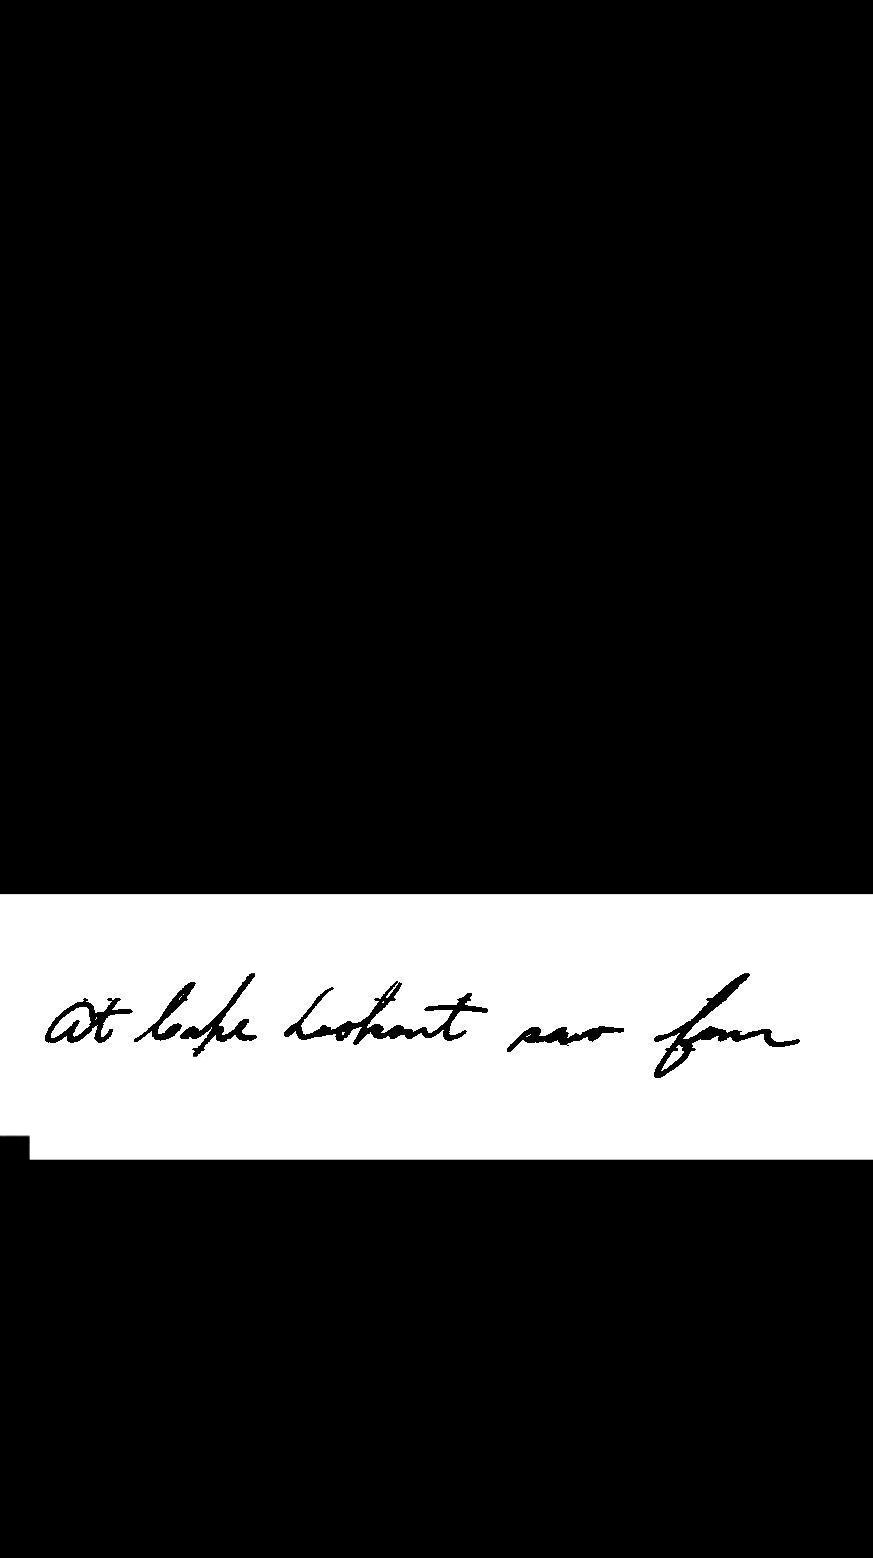 At Cape Lookout saw four